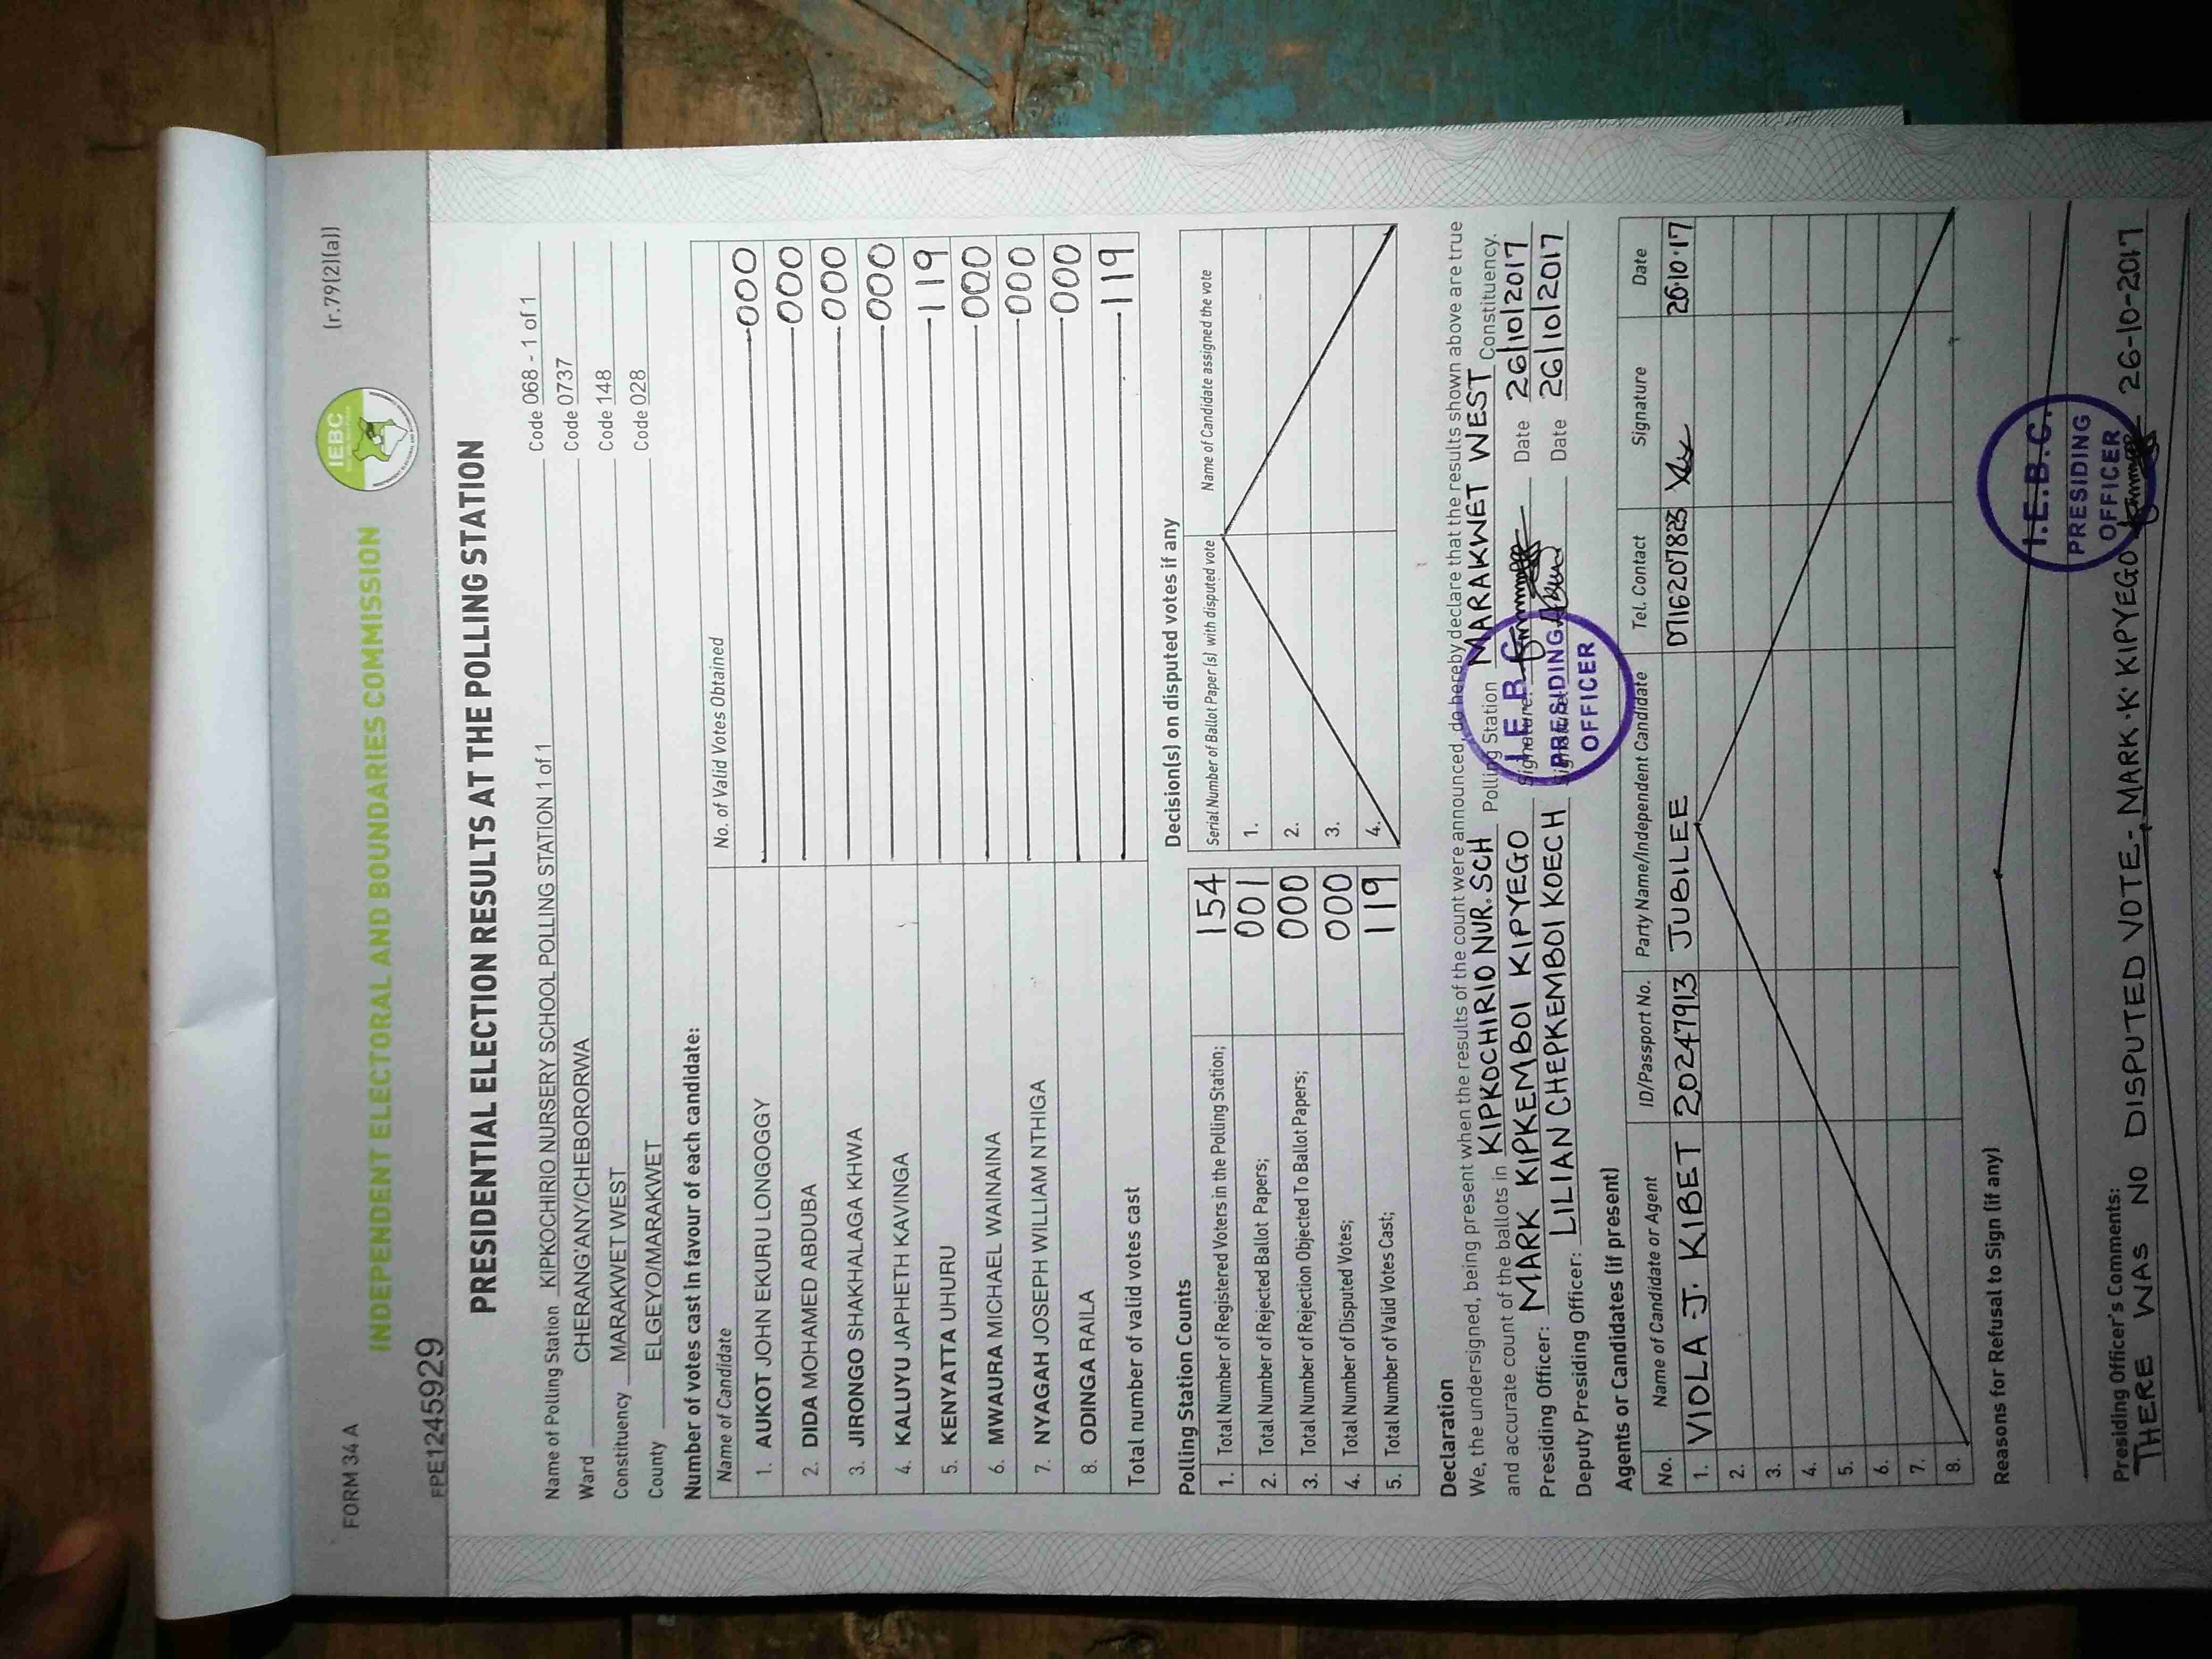 FORM 34 A
(r.79(2)(a))
IEBC
INDEPENDENT ELECTORAL AND BOUNDARIES COMMISSION
FPE1245929
PRESIDENTIAL ELECTION RESULTS AT THE POLLING STATION
Name of Polling Station KIPKOCHIRIO NURSERY SCHOOL POLLING STATION 1 of 1 Code 068 - 1 of 1
Ward CHERANG'ANY/CHEBORORWA Code 0737
Constituency MARAKWET WEST Code 148
County ELGEYO/MARAKWET Code 028
Number of votes cast in favour of each candidate:
Name of Candidate No. of Valid Votes Obtained
1. AUKOT JOHN EKURU LONGOGGY 000
2. DIDA MOHAMED ABDUBA 000
3. JIRONGO SHAKHALAGA KHWA 000
4. KALUYU JAPHETH KAVINGA 000
5. KENYATTA UHURU 119
6. MWAURA MICHAEL WAINAINA 000
7. NYAGAH JOSEPH WILLIAM NTHIGA 000
8. ODINGA RAILA 000
Total number of valid votes cast 119
Polling Station Counts
1. Total Number of Registered Voters in the Polling Station; 154
2. Total Number of Rejected Ballot Papers; 001
3. Total Number of Rejection Objected To Ballot Papers; 000
4. Total Number of Disputed Votes; 000
5. Total Number of Valid Votes Cast; 119
Decision(s) on disputed votes if any
Serial Number of Ballot Paper (s) with disputed vote Name of Candidate assigned the vote
1.
2.
3.
4.
Declaration
We, the undersigned, being present when the results of the count were announced, do hereby declare that the results shown above are true
and accurate count of the ballots in KIPKOCHIRIO NUR. SCH Polling Station MARAKWET WEST Constituency.
Presiding Officer: MARK KIPKEMBOI KIPYEGO Signature: Date 26/10/2017
Deputy Presiding Officer: LILIAN CHEPKEMBOI KOECH Signature: Date 26/10/2017
I.E.B.C.
PRESIDING
OFFICER
Agents or Candidates (if present)
No. Name of Candidate or Agent ID/Passport No. Party Name/Independent Candidate Tel. Contact Signature Date
1. VIOLA J. KIBET 20247913 JUBILEE 0716207823 26.10.17
2.
3.
4.
5.
6.
7.
8.
Reasons for Refusal to Sign (if any)
I.E.B.C.
PRESIDING
OFFICER
Presiding Officer's Comments:
THERE WAS NO DISPUTED VOTE - MARK.K. KIPYEGO 26-10-2017